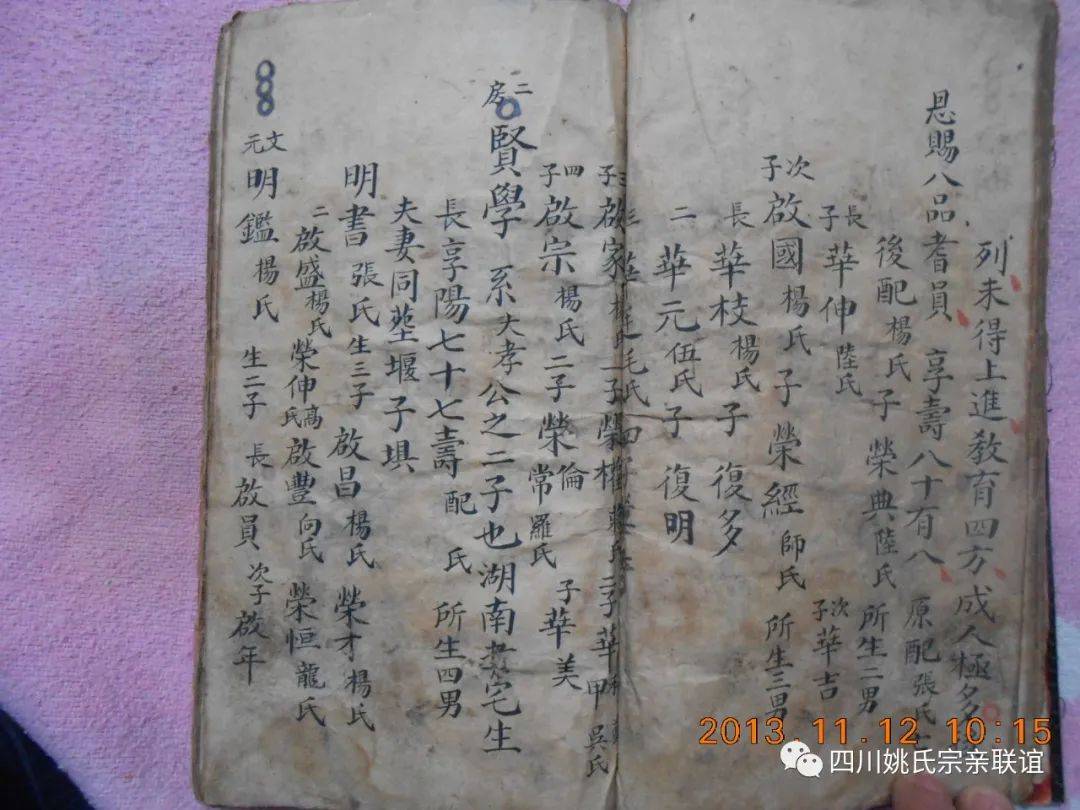 列未得上進教育四方成人極多
恩賜八品耆員 享壽八十有八 原配張氏
後配楊氏 子 榮典 陸氏 所生二男
長子 華伸 陸氏 次子 華吉
次子 啟國 楊氏 子 榮經 師氏 所生三男
長 華枝 楊氏 子 復多
二 華元 伍氏 子 復明
三 華 毛氏 四
三子 啟家 楊氏 子 榮權 氏 子 華甲 吳氏
四子 啟宗 楊氏 二子 榮倫 常羅氏 子 華美
二房 賢學 系大孝公之二子也湖南老宅生
長享陽七十七壽 配 氏 所生四男
夫妻同塟堰子埧
明書 張氏 生三子 啟昌 楊氏 榮才 楊氏
二 啟盛 楊氏 榮伸 高氏 啟豐 向氏 榮恒 龍氏
文元 明鑑 楊氏 生二子 長 啟員 次子 啟年
2013.11.12 10:15
四川姚氏宗亲联谊